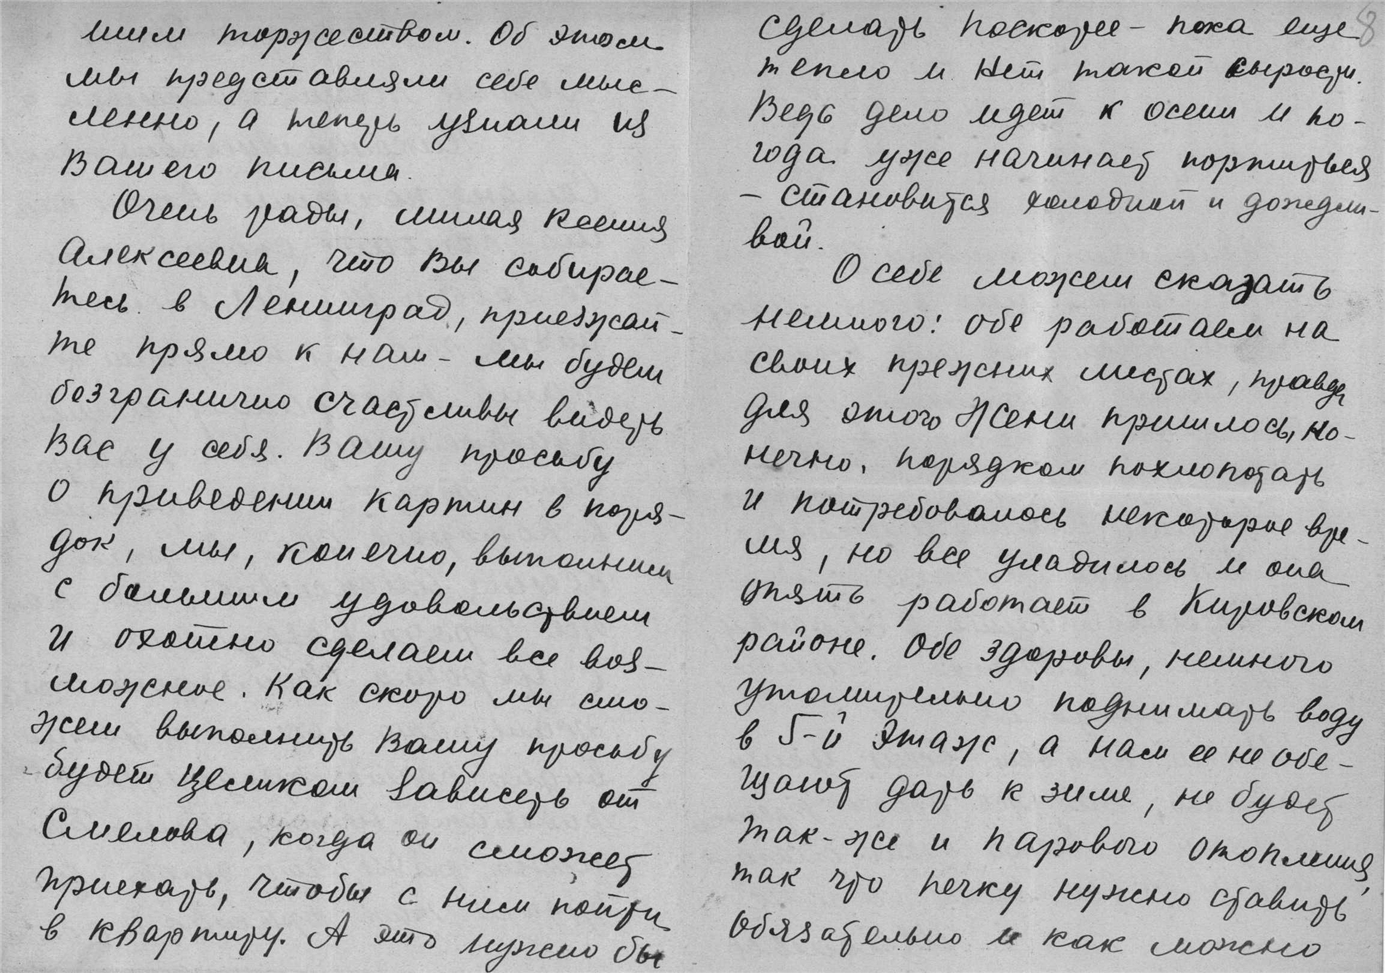 шим торжеством. Об этом
мы представляли себе мыс-
ленно, а теперь узнали из
Вашего письма.
Очень рады, милая Ксения
Алексеевна, что Вы собирае-
тесь в Ленинград, приезжай-
те прямо к нам - мы будем
безгранично счастливы видеть
Вас у себя. Вашу просьбу
о приведении картин в поря-
док, мы, конечно, выполним
с большим удовольствием
и охотно сделаем все воз-
можное. Как скоро мы смо-
жем выполнить Вашу просьбу
будет целиком зависеть от
Смелова, когда он сможет
приехать, чтобы с ним пойти
в квартиру. А это нужно бы
8
сделать поскорее - пока еще
тепло и нет такой сырости.
Ведь дело идет к осени и по-
года уже начинает портиться
- становится холодной и дождли-
вой.
О себе можем сказать
немного: обе работаем на
своих прежних местах, правда
для этого Жени пришлось, ко-
нечно, порядком похлопотать
и потребовалось некоторое вре-
мя, но все уладилось и она
опять работает в Кировском
районе. Обе здоровы, немного
утомительно поднимать воду
в 5-й этаж, а нам ее не обе-
щают дать к зиме, не будет
так-же и парового отопления,
так что печку нужно ставить
обязательно и как можно